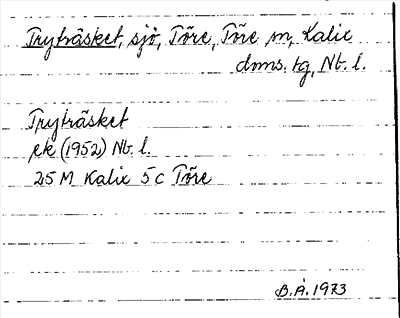 Tryträsket, sjö, Töre, Töre sn, Kalix
doms. tg, Nb. l.
Tryträsket
ek (1952) Nb. l.
25 M Kalix 5 c Töre
B.Å. 1973